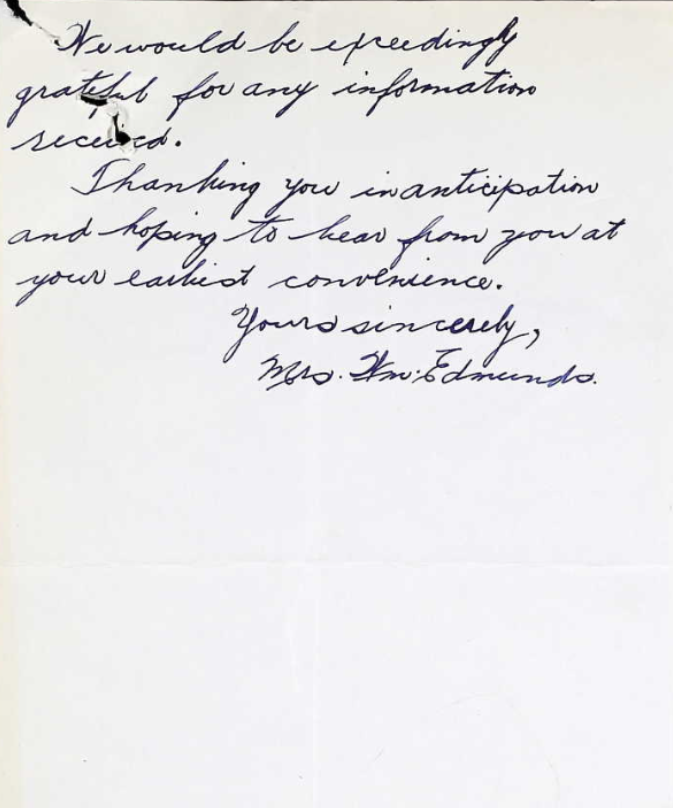 We would be exceedingly
grateful for any information
received.
Thanking you in anticipation
and hoping to hear from you at
your earliest convenience.
Yours sincerely,
Mrs. Wm. Edmunds.